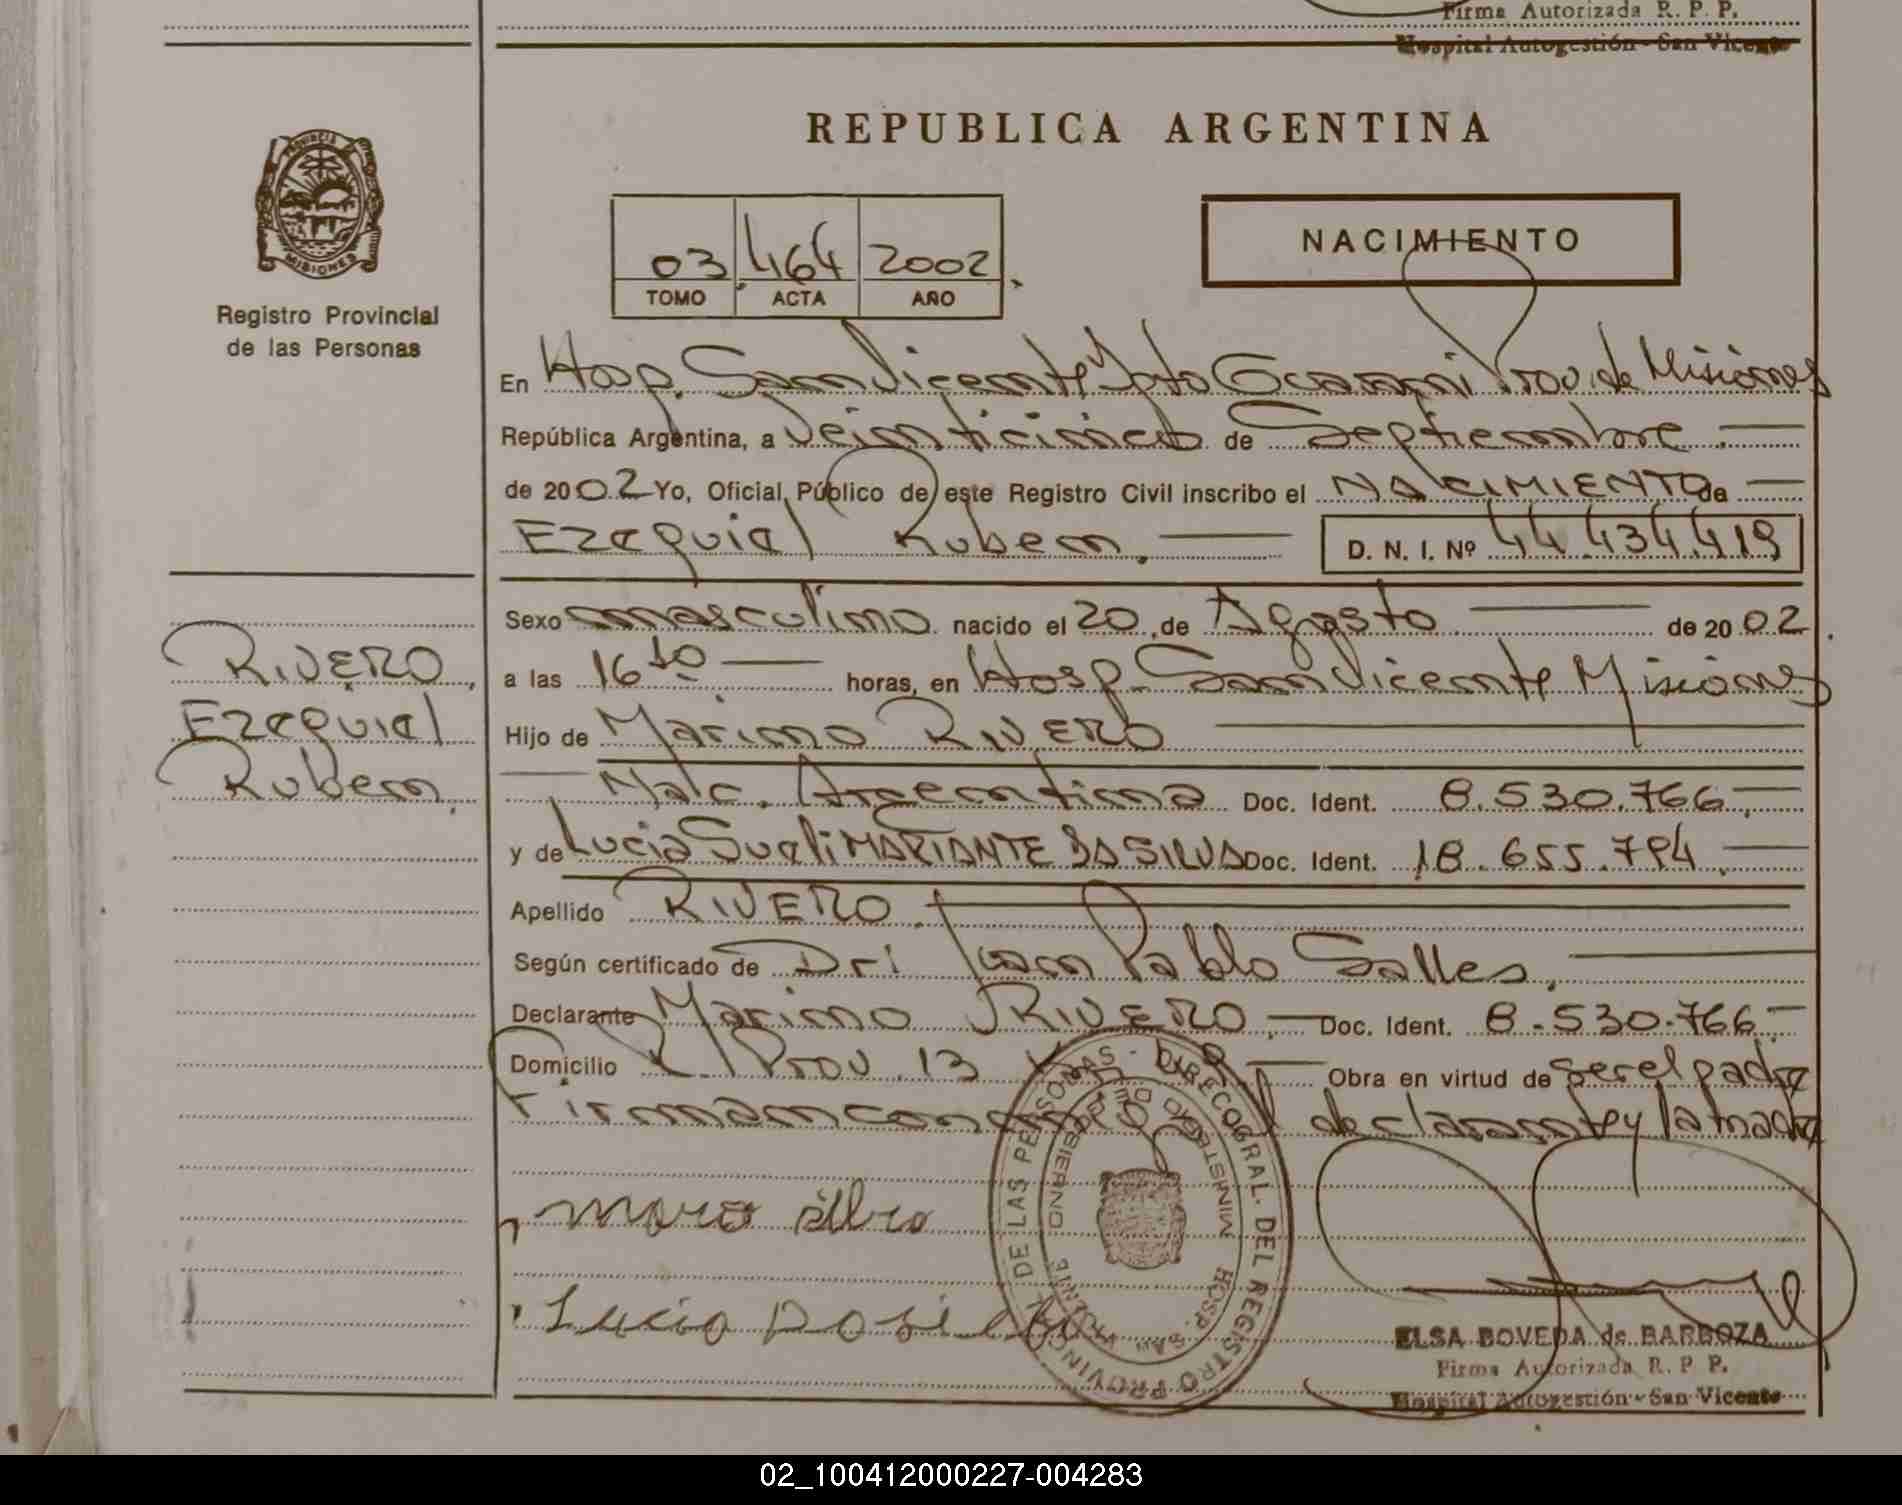 Firma Autorizada R. P. P.
Hospital Autogestión - San Vicente
REPUBLICA ARGENTINA
PROVINCIA
MISIONES
Registro Provincial
de las Personas
NACIMIENTO
03 464 2002
TOMO ACTA AÑO
En Hosp. San Vicente Dpto Guarani Prov. de Misiones
República Argentina, a Veinticinco de Septiembre.
de 2002 Yo, Oficial Público de este Registro Civil inscribo el NACIMIENTO de
Ezequiel Ruben. D. N. I. Nº 44.434.419
Sexo masculino nacido el 20 de Agosto de 2002
a las 16 10 horas, en Hosp. San Vicente Misiones
Hijo de Marino RIVERO
Nac. Argentina Doc. Ident. 8.530.766
y de Lucia Sueli MARIANTE DA SILVA Doc. Ident. 18.655.794
Apellido RIVERO.
Según certificado de Dr: Juan Pablo Salles.
Declarante Marino RIVERO. Doc. Ident. 8.530.766
Domicilio R. Prov. 13 Obra en virtud de ser el padre
Firman conmigo el declarante y la madre
RIVERO
Ezequiel
Ruben.
DIREC. GRAL. DEL REGISTRO PROVINCIAL DE LAS PERSONAS
MINISTERIO DE GOBIERNO
HOSP. SAN VICENTE
Lucia Da Silva
ELSA BOVEDA de BARBOZA
Firma Autorizada R. P. P.
Hospital Autogestión - San Vicente
02_100412000227-004283